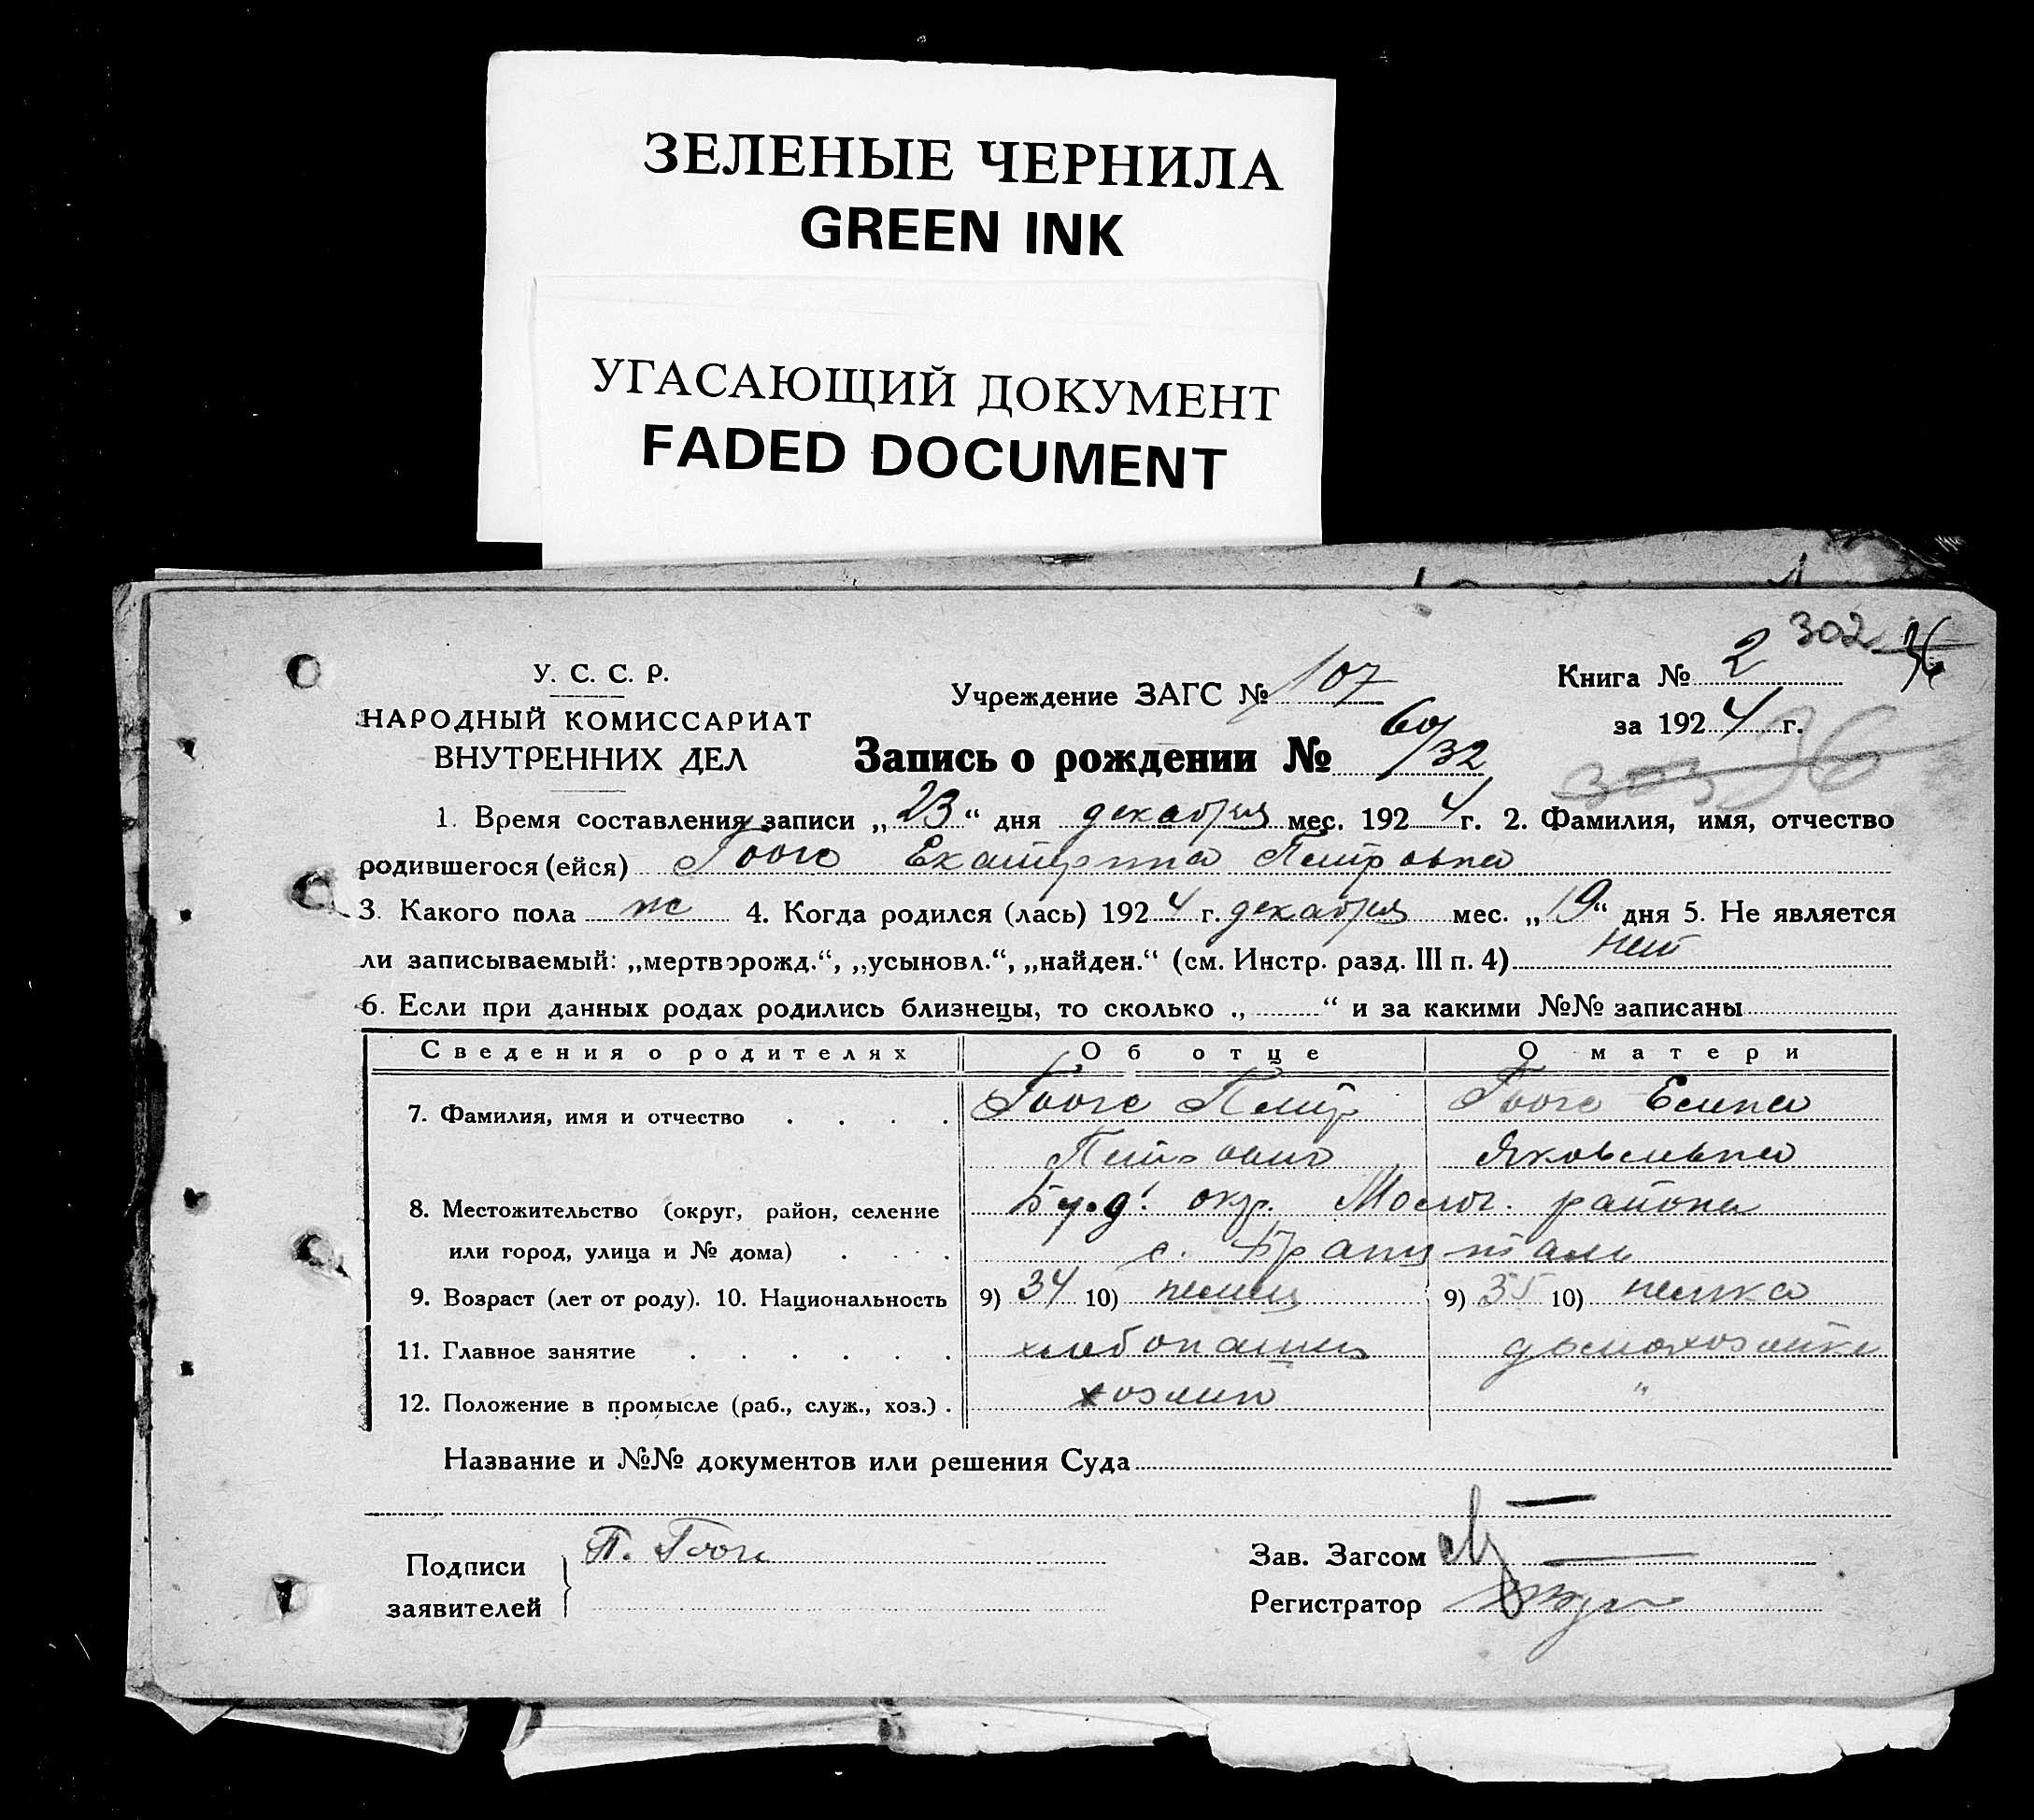 ЗЕЛЕНЫЕ ЧЕРНИЛА
GREEN INK
УГАСАЮЩИЙ ДОКУМЕНТ
FADED DOCUMENT
302 36
У. С. С. Р.
НАРОДНЫЙ КОМИССАРИАТ
ВНУТРЕННИХ ДЕЛ
Учреждение ЗАГС № 107
Книга № 2
за 1924 г.
303 36
Запись о рождении № 60/32
1. Время составления записи „23“ дня декабря мес. 1924 г. 2. Фамилия, имя, отчество
родившегося (ейся) Гооге Екатерина Петровна
3. Какого пола ж 4. Когда родился (лась) 1924 г. декабря мес. „19“ дня 5. Не является
ли записываемый: „мертворожд.“, „усыновл.“, „найден.“ (см. Инстр. разд. III п. 4) нет
6. Если при данных родах родились близнецы, то сколько „ “ и за какими №№ записаны
Сведения о родителях Об отце О матери
7. Фамилия, имя и отчество . . . . Гооге Петр Гооге Елена
Петрович Яковлевна
8. Местожительство (округ, район, селение окр. Молоч. района
или город, улица и № дома) . . . . с.
9. Возраст (лет от роду). 10. Национальность 9) 34 10) немец 9) 35 10) немка
11. Главное занятие . . . . . . хлебопашец домохозяйка
12. Положение в промысле (раб., служ., хоз.) . хозяин "
Название и №№ документов или решения Суда
Подписи
заявителей
П. Гооге
Зав. Загсом
Регистратор